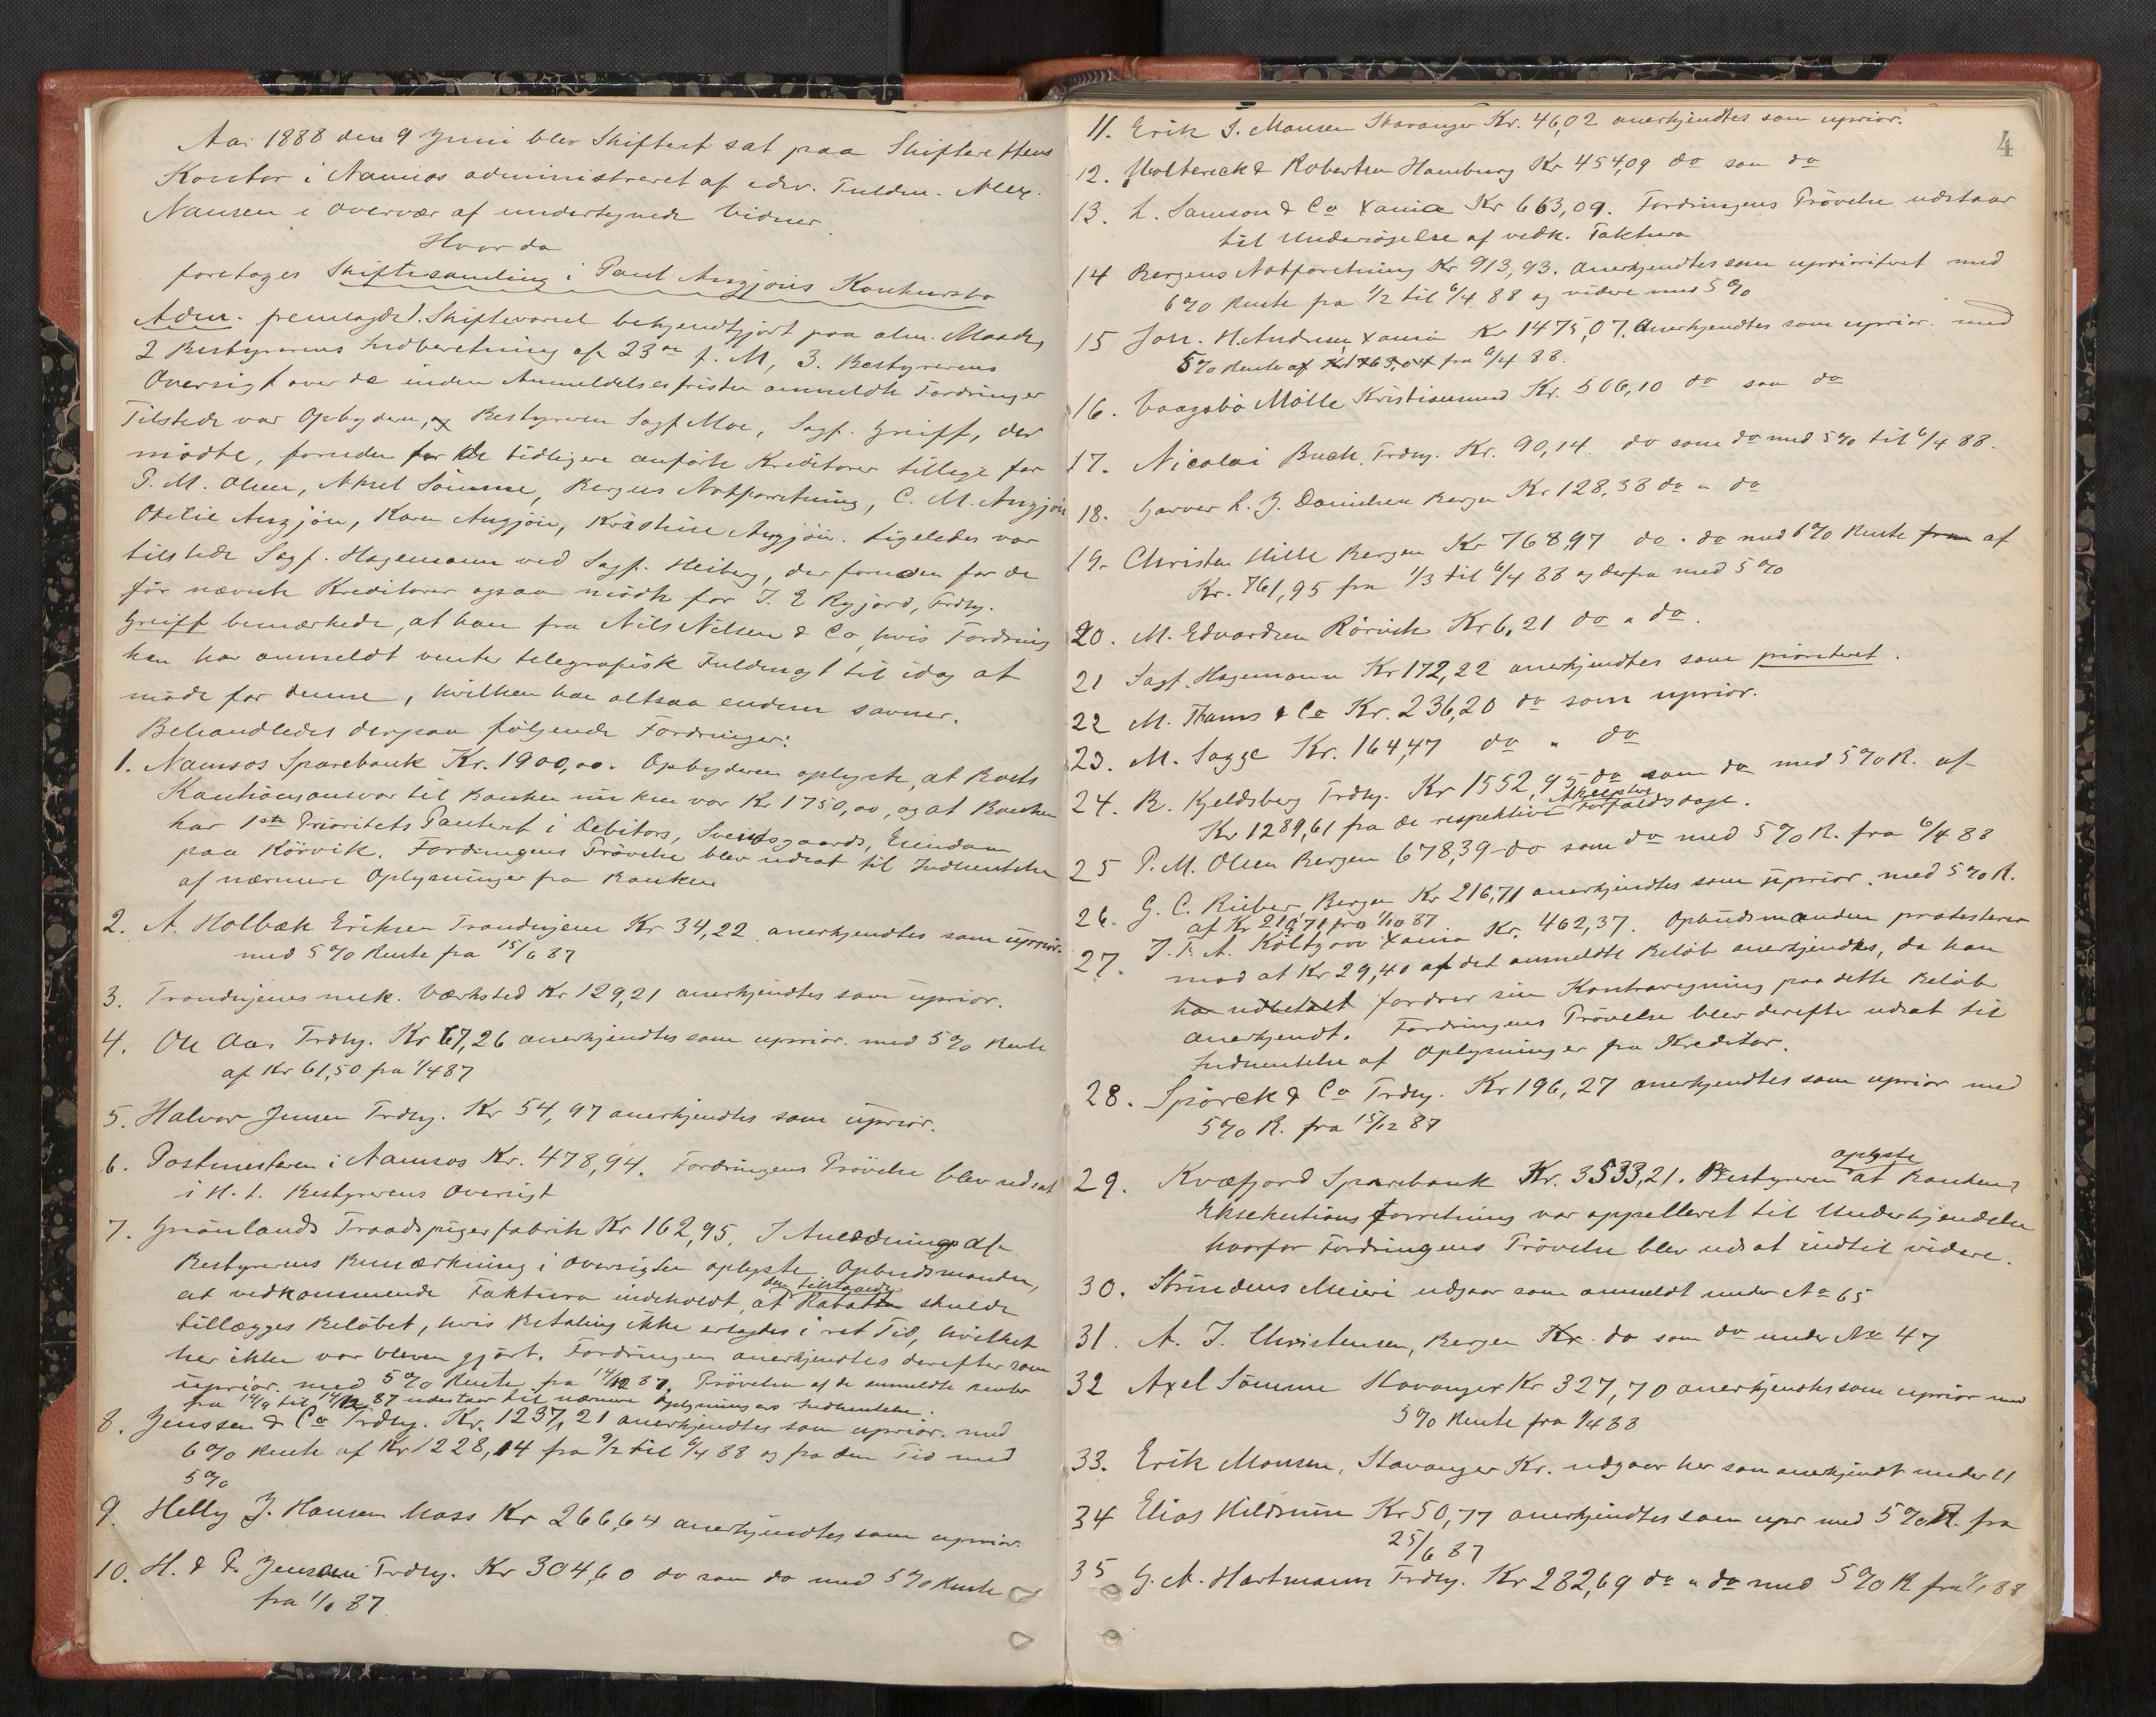 Aar 1888 den 9 Juni blev Skifteret sat paa Skifterettens
Kontor i Namsos administreret af edsv. Fuldm. Alex.
Nansen i Overvær af undertegnede Vidner.
Hvor da
foretoges Skiftesamling i Paul Angjøns Konkursbo
Adm. fremlagde 1. Skiftevarsel bekjendtgjort paa alm. Maade,
2 Bestyrerens Indberetning af 23de f. M, 3. Bestyrerens
Oversigt over de inden Anmeldelsesfristen anmeldte Fordringer
Tilstede var Opbyderen, og Bestyreren Sagf Moe, Sagf. Greiff, der
mødte, foruden for de tidligere anførte Kreditorer tillige for
P. M. Olsen, Aksel Sømme, Bergens Notforretning, C. M. Angjøn
Otilie Angjøn, Karen Angjøn, Kristine Angjøn. Ligeledes var
tilstede Sagf. Hagemann ved Sagf. Heiberg, der foruden for de
før nævnte Kreditorer ogsaa mødte for J. E Rygjord, Trdhj.
Greiff bemærkede, at han fra Nils Nilsen & Co, hvis Fordring
han har anmeldt venter telegrafisk Fuldmagt til idag at
møde for denne, hvilken han altsaa endnu savner.
Behandledes derpaa følgende Fordringer:
1. Namsos Sparebank Kr. 1900,00. Opbyderen oplyste, at Boets
Kautionsansvar til Banken nu kun var Kr 1750,00, og at Banken
har 1ste Prioritets Panteret i Debitors, Svendsgaards, Eiendom
paa Rörvik. Fordringens Prövelse blev udsat til Indhentelse
af nærmere Oplysninger fra Banken
2. A. Holbæk Eriksen Trondhjem Kr 34,22 anerkjendtes som uprior.
med 5% Rente fra 15/6 87
3. Trondhjems mek. Værksted Kr 129,21 anerkjendtes som uprior.
4. Ole Aas Trdhj. Kr 67,26 anerkjendtes som uprior. med 5% Rente
af Kr 61,50 fra 1/4 87
5. Halvor Jensen Trdhj. Kr 54,97 anerkjendtes som uprior.
6. Postmesteren i Namsos Kr. 478,94. Fordringens Prövelse blev udsat
i H. t. Bestyrerens Oversigt
7. Grönlands Traadspigerfabrik Kr 162,95. I Anledning af
Bestyrerens Bemærkning i Oversigten oplyste Opbudsmanden,
at vedkommende Faktura indeholdt, at den tilstaaede Rabat skulde
tillægges Beløbet, hvis Betaling ikke erlagdes i ret Tid, hvilket
her ikke var bleven gjort. Fordringen anerkjendtes derefter som
uprior. med 5% Rente fra 14/12 87. Prövelsen af de anmeldte Renter
fra 14/9 til 14/12 87 udestaar til nærmere Oplysningers Indhentelse.
8. Jenssen & Co Trdhj. Kr. 1237,21 anerkjendtes som uprior. med
6% Rente af Kr 1228,14 fra 9/2 til 6/4 88 og fra den Tid med
5%
9. Helly J. Hansen Moss Kr 266,64 anerkjendtes som uprior.
10. H. & F. Jensen Trdhj. Kr 304,60 do som do med 5% Rente
fra 1/1 87
4
11. Erik T. Monsen Stavanger Kr. 46,02 anerkjendtes som uprior.
12. Wolterick & Robertsen Hamburg Kr 454,09 do som do
13. L. Samson & Co Xania Kr 663,09. Fordringens Prövelse udstaar
til Undersøgelse af vedk. Faktura
14 Bergens Notforretning Kr 913,93. Anerkjendtes som uprioriteret med
6% Rente fra 1/2 til 6/4 88 og videre med 5%
15 Joh. H. Andresen Xania Kr 1475,07. Anerkjendtes som uprior. med
5% Rente af Kr 1463,04 fra 6/4 88.
16. Vaagsbø Mölle Kristiansund Kr. 506,10 do som do
17. Nicolai Buch Trdhj. Kr. 90,14. do som do med 5% til 6/4 88.
18. Garver L. J. Danielsen Bergen Kr 128,38 do " do
19. Christen Mille Bergen Kr 768,97 do. do med 6% Rente fra af
Kr. 761,95 fra 1/3 til 6/4 88 og derfra med 5%
20. M. Edvardsen Rörvik Kr 6,21 do " do.
21 Sagf. Hagemann Kr 172,22 anerkjendtes som prioriteret.
22 M. Thams & Co Kr. 236,20 do som uprior.
23. M. Sagge Kr. 164,47 do " do
24. R. Kjeldsberg Trdhj. Kr 1552,95 do som do med 5% R. af
Kr 1289,61 fra de respektive Akcepters Forfaldsdage.
25 P. M. Olsen Bergen 678,39 do som do med 5% R. fra 6/4 88
26. G. C. Rieber, Bergen Kr 216,71 anerkjendtes som uprior. med 5% R.
af Kr 216,71 fra 1/10 87
27. J. F. A. Koltzow Xania Kr. 462,37. Opbudsmanden protesterer
mod at Kr 29,40 af det anmeldte Beløb anerkjendtes, da han
har udbetalt fordrer sin Kontraregning paa dette Beløb
anerkjendt. Fordringens Prövelse blev derefter udsat til
Indhentelse af Oplysninger fra Kreditor.
28. Spörck & Co Trdhj. Kr 196,27 anerkjendtes som uprior med
5% R. fra 15/12 87
29. Kvæfjord Sparebank Kr. 3533,21. Bestyreren oplyste at Bankens
Eksekutionsforretning var appelleret til Underkjendelse
hvorfor Fordringens Prövelse blev udsat indtil videre.
30. Strindens Meieri udgaar som anmeldt under No 65
31. A. J. Christensen, Bergen Kr. do som do under No 47
32 Axel Sömme Stavanger Kr 327,70 anerkjendtes som uprior med
5% Rente fra 1/4 88
33. Erik Monsen, Stavanger Kr. udgaar her som anerkjendt under 11
34 Elias Hildrum Kr 50,77 anerkjendtes som upr med 5% R. fra
25/6 87
35 G. A. Hartmann Trdhj. Kr 282,69 do " do med 5% R fra 1/1 88